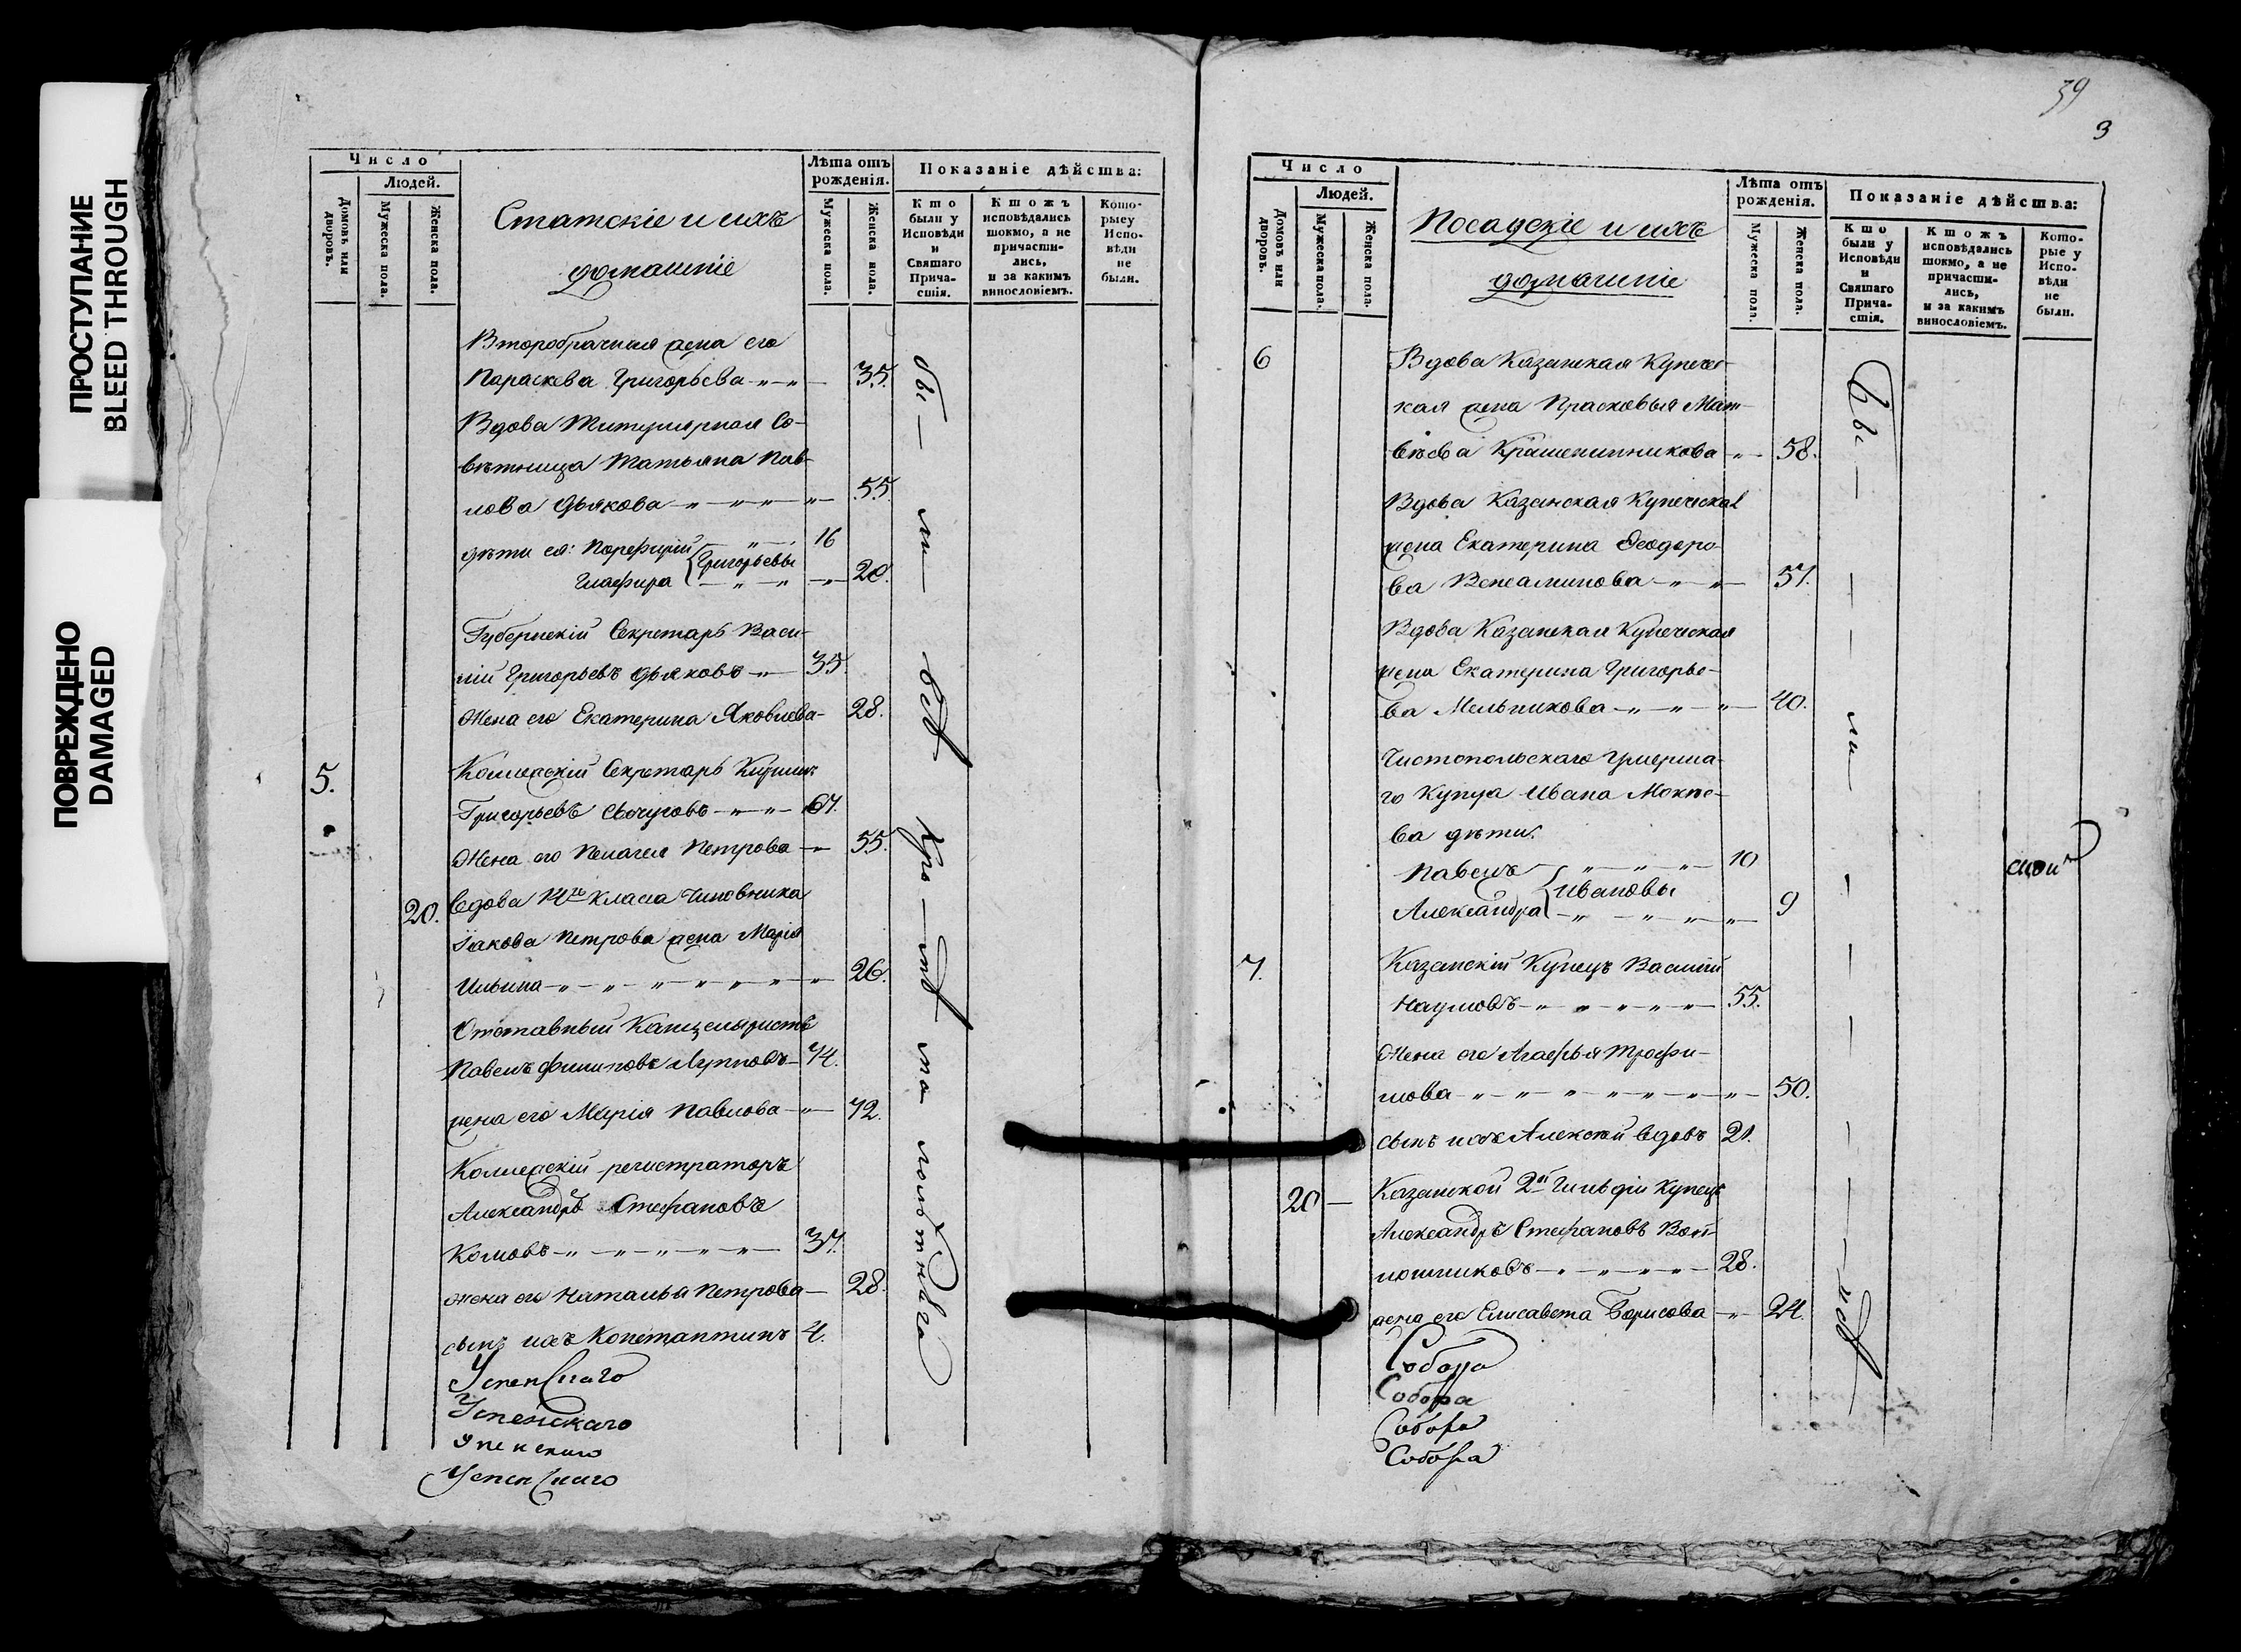 ПРОСТУПАНИЕ
BLEED THROUGH
ПОВРЕЖДЕНО
DAMAGED
Число
Людей.
Домовъ или дворовъ.
Мужеска пола.
Женска пола.
Статскіе и ихъ
домашніе
Лѣта отъ
рожденія.
Мужеска пола.
Женска пола.
Показаніе дѣйства:
Кто
были у
Исповѣди
и
Святаго
Прича-
стія.
Ктожъ
исповѣдались
токмо, а не
причасти-
лись,
и за какимъ
винословіемъ.
Кото-
рыеу
Испо-
вѣди
не
были.
Второбрачная жена его
Параскева Григорьева 35.
Вдова Титулярная Со-
вѣтница Татьяна Пав-
лова Дьякова 55
дѣти ея: Порфирій 16
Григорьевы
Глафира 20.
Губернскій Секретарь Васи-
лій Григорьевъ Дьяковъ 35.
Жена его Екатерина Яковлева 28.
5. Коллежскій Секретарь Кирилъ
Григорьевъ 67.
Жена его Пелагея Петрова 55.
20. Вдова 14го класса Чиновника
Іакова Петрова жена Марія
Ильина 26.
Отставный Канцеляристъ
Павелъ Филиповъ 74.
жена его Марія Павлова 72.
Коллежскій регистраторъ
Александръ Стефановъ
Комовъ 37.
жена его Наталья Петрова 28.
сынъ ихъ Константинъ 4.
Успенскаго
Успенскаго
Успенскаго
Успенскаго
бы — ли — всѣ
39
3
Число
Людей.
Домовъ или дворовъ.
Мужеска пола.
Женска пола.
Посадскіе и ихъ
домашніе
Лѣта отъ
рожденія.
Мужеска пола.
Женска пола.
Показаніе дѣйства:
Кто
были у
Исповѣди
и
Святаго
Прича-
стія.
Ктожъ
исповѣдались
токмо, а не
причасти-
лись,
и за какимъ
винословіемъ.
Кото-
рые у
Испо-
вѣди
не
были.
6 Вдова Казанская Купечес-
кая жена Прасковья Мат-
вѣева Крашенинникова 58.
Вдова Казанская Купеческая
жена Екатерина Ѳеодоро-
ва Веніаминова 57.
Вдова Казанская Купеческая
жена Екатерина Григорье-
ва Мельникова 40.
Чистопольскаго Умерша-
го Купца Ивана Мокѣе-
ва дѣти:
Павелъ 10
Ивановы
Александра 9
7. Казанскій Купецъ Василій
Наумовъ 55.
Жена его Агафья Трофи-
мова 50.
сынъ ихъ Алексѣй вдовъ 21.
20 Казанской 2й Гильдіи Купецъ
Александръ Стефановъ
28.
жена его Елисавета Борисова 24.
Собора
Собора
Собора
Собора
бы — ли